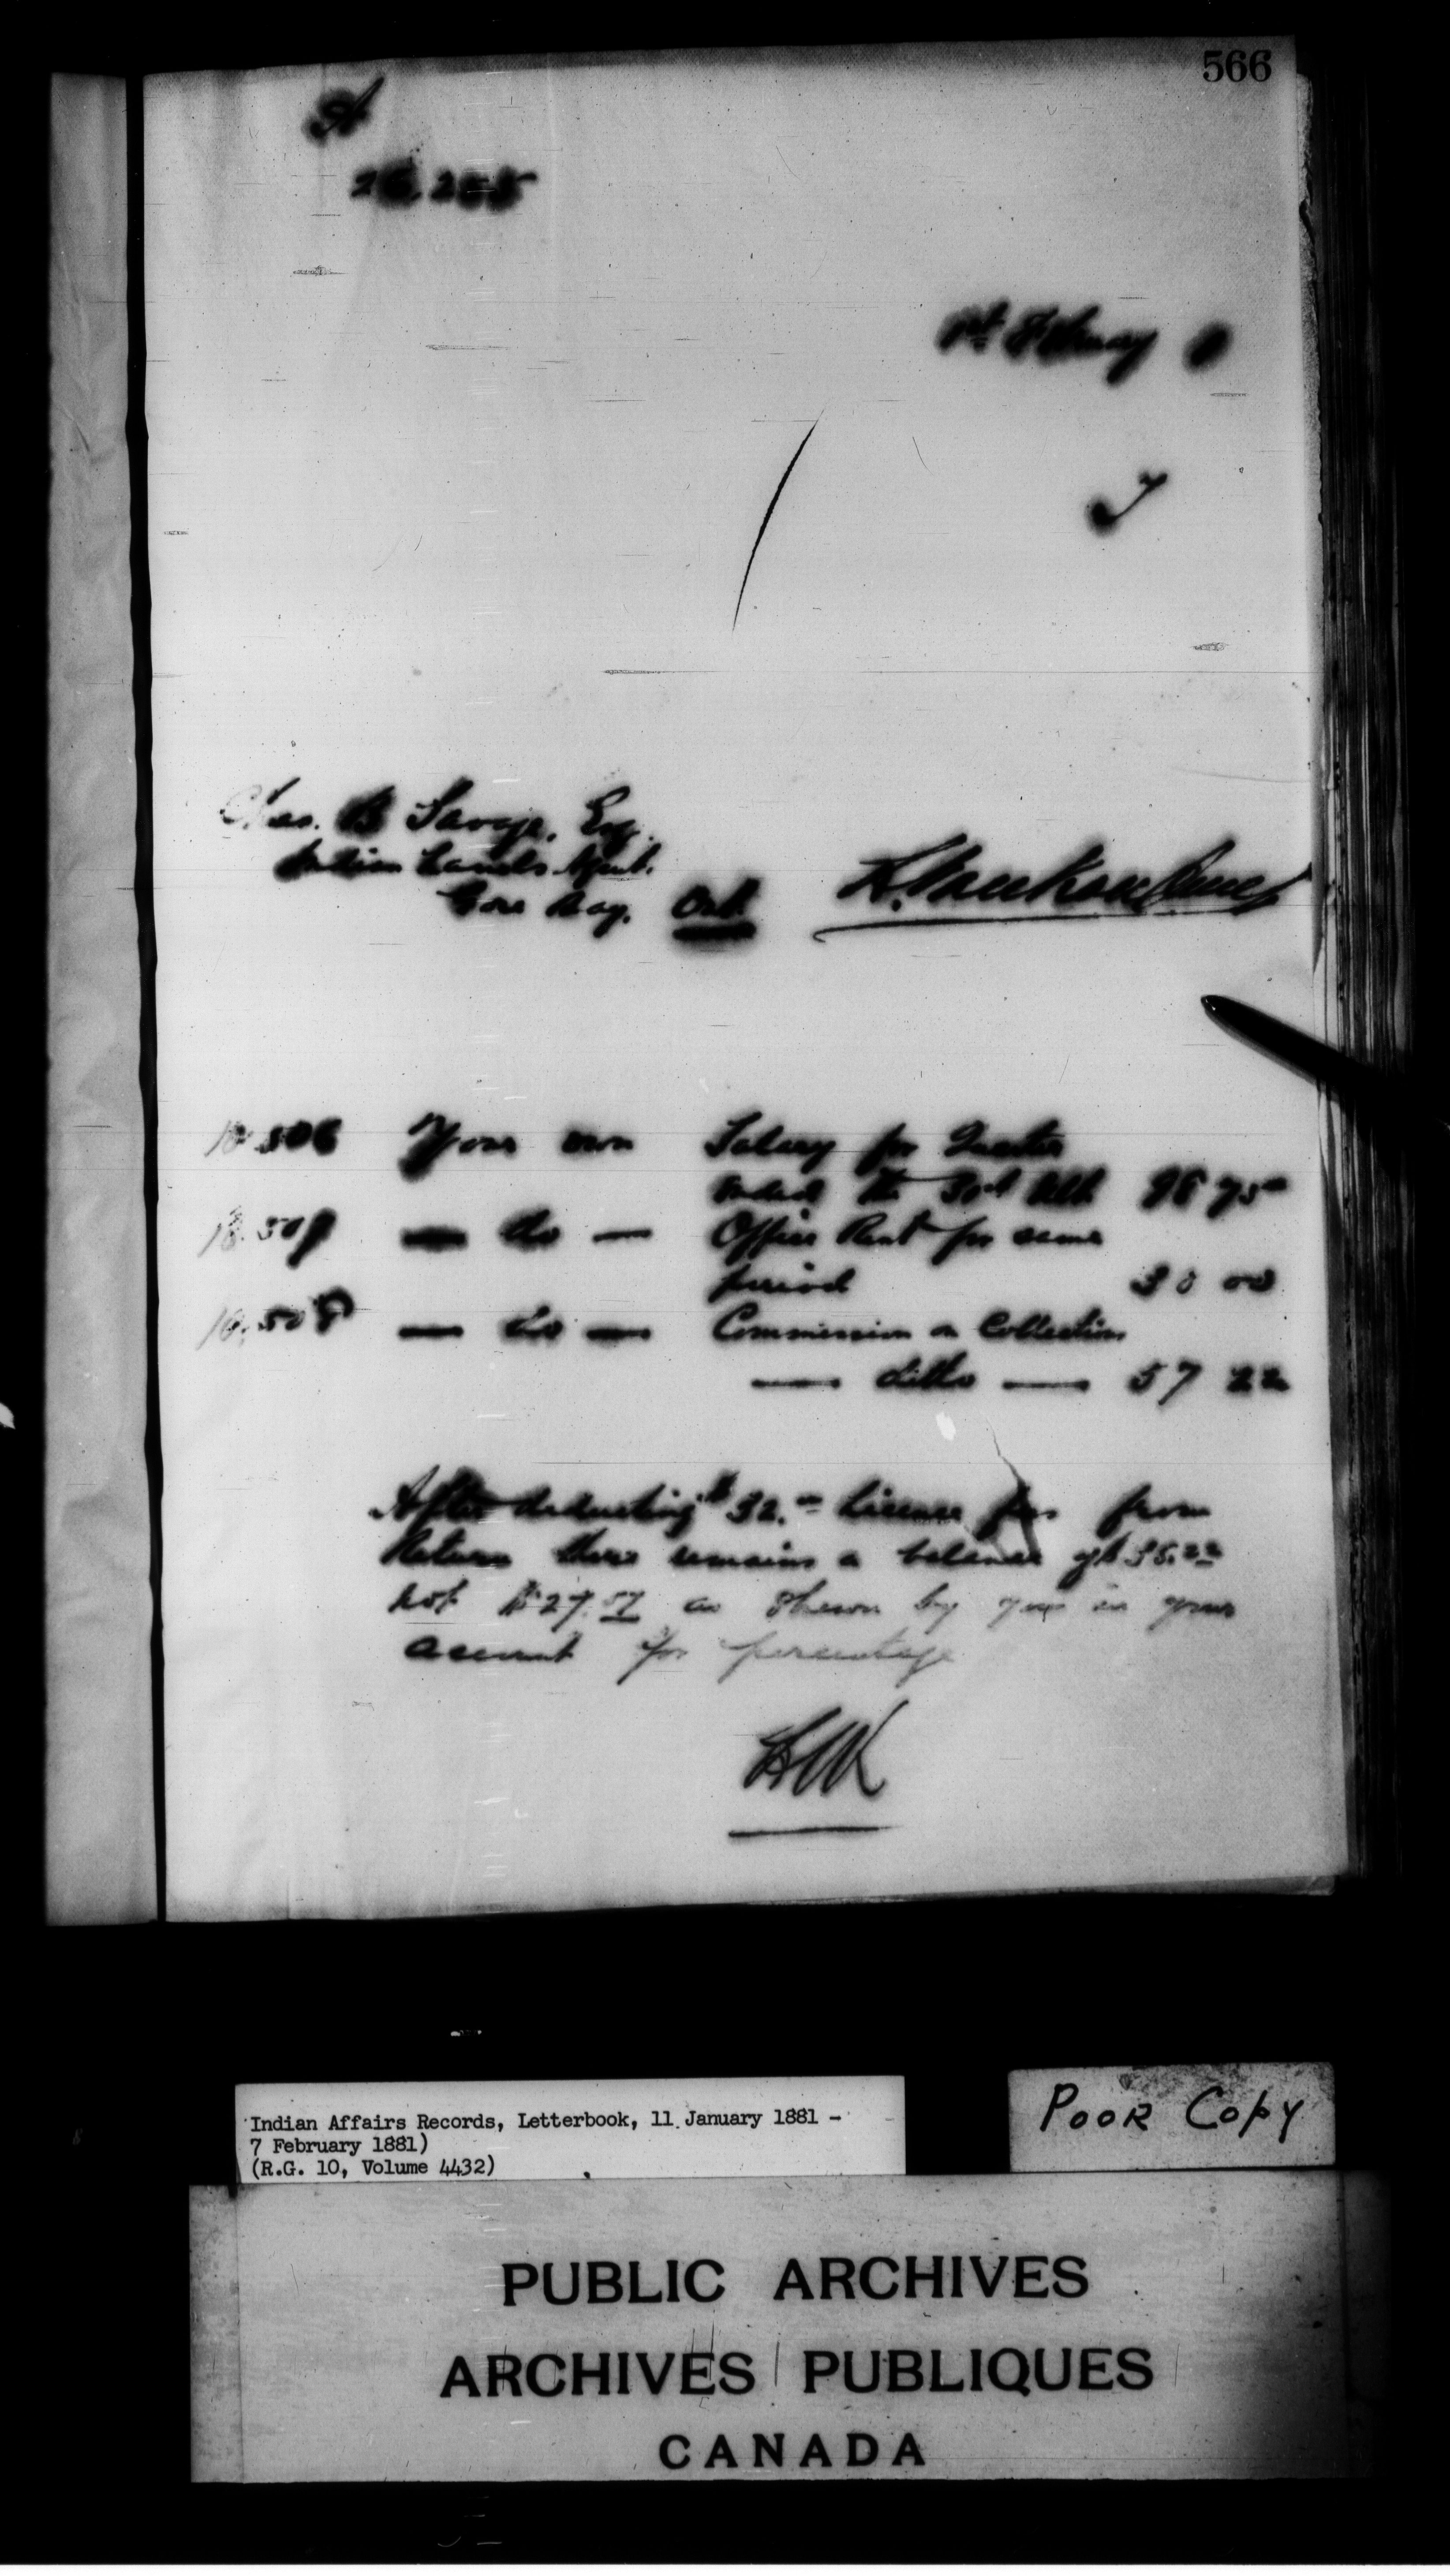 566
A
26,255
1st February 1
Chas. B Savage, Esq.
Indian Lands Agent.
Gore Bay. Ont.
L. Vankoughnet
10.506 Your own Salary for Quarter
ended the 31st Ult. 98 75
10.507 — do — Office Rent for same
period 30 00
10.508 — do — Commission on Collections
— ditto — 57 22
After deducting $32.00 license fees from
Return there remains a balance of
not $27.57 as shewn by you in your
account for percentage
Indian Affairs Records, Letterbook, 11 January 1881 -
7 February 1881)
(R.G. 10, Volume 4432)
POOR COPY
PUBLIC ARCHIVES
ARCHIVES PUBLIQUES
CANADA